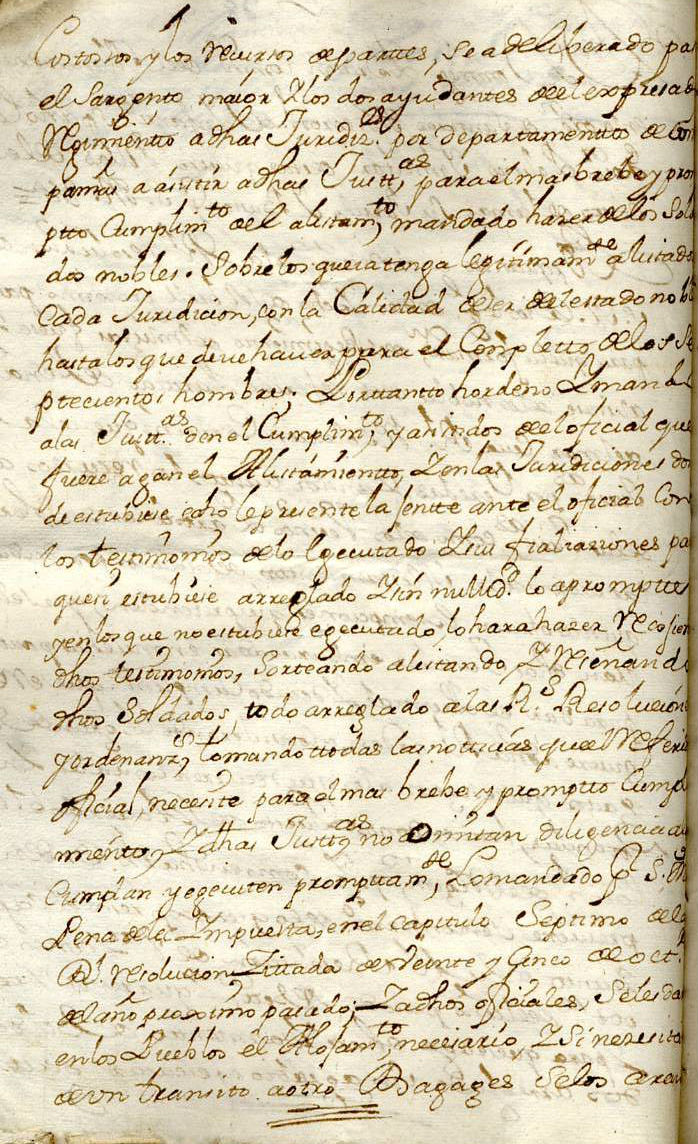 Costosos y los recursos de parttes, se a deliberado pa
el Sargento maior Y los dos ayudantes de el expresad
Regimiento a dhas Juridiz.es por departamentto de Com
pamas a asistir a dhas Justt.as para el mas brebe y prom
ptto Cumplim.to de el alistam.to mandado hazer de los Sol
dos nobles. Sobre los que ia tenga legitimam.te alistado
Cada Juridicion, con la Calidad de ser de el estado nobl
hasta los que deve haver para el Completto de los Se
ptecientos hombres; Portantto hordeno Y mando
a las Justt.as den el Cumplim.to, y auxilios de el oficial que
fuere a gan el Alistamientto, Y en las Juridiciones don
de estubiese echo le presente la jentte ante el oficial Con
los testimonios de lo Egecutado Y sus filiaziones pa
que si estubiese arreglado Y sin nullid.d lo apromptte
y en los que no estubiese egecutado, lo hara hazer recogien
dhos testimonios, Sorteando alistando, Y reseñando
dhos Soldados, todo arreglado a las R.s Resolucione
y ordenanz.s, tomando ttodas las notticias que el referi
oficial, necesite para el mas brebe y promptto Cumpl
miento, Y dhas Justt.as no omittan diligencia a
Cumplan y egecuten prompttam.te, Lo mandado p.r S. M
Pena de la Impuesta, en el capitulo Septimo de la
R.l resolucion Zittada de Veinte y Cinco de oct.
de el año proximo pasado; Y a dhos oficiales, Se les da
en los Pueblos el Alojam.to necesario, Y Si nezesita
de Un transito a otro Bagages Se los dara